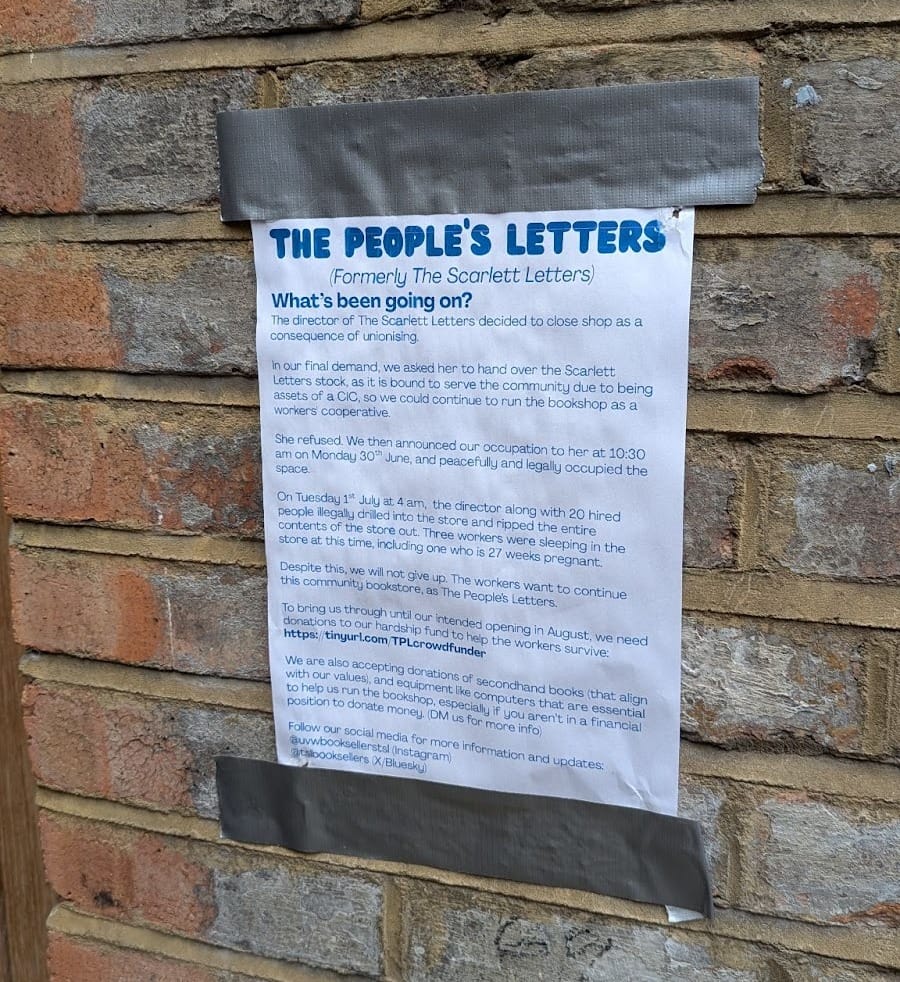 THE PEOPLE'S LETTERS
(Formerly The Scarlett Letters)
What's been going on?
The director of The Scarlett Letters decided to close shop as a
consequence of unionising.
In our final demand, we asked her to hand over the Scarlett
Letters stock, as it is bound to serve the community due to being
assets of a CIC, so we could continue to run the bookshop as a
workers' cooperative.
She refused. We then announced our occupation to her at 10:30
am on Monday 30th June, and peacefully and legally occupied the
space.
On Tuesday 1st July at 4 am, the director along with 20 hired
people illegally drilled into the store and ripped the entire
contents of the store out. Three workers were sleeping in the
store at this time, including one who is 27 weeks pregnant.
Despite this, we will not give up. The workers want to continue
this community bookstore, as The People's Letters.
To bring us through until our intended opening in August, we need
donations to our hardship fund to help the workers survive:
https://tinyurl.com/TPLcrowdfunder
We are also accepting donations of secondhand books (that align
with our values), and equipment like computers that are essential
to help us run the bookshop, especially if you aren't in a financial
position to donate money. (DM us for more info)
Follow our social media for more information and updates:
@uvwbooksellerstsl (Instagram)
@tslbooksellers (X/Bluesky)